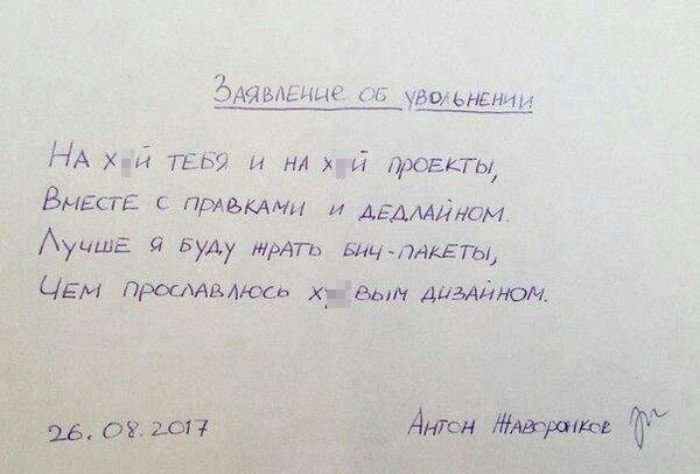 Заявление об увольнении
На х й тебя и на х й проекты,
Вместе с правками и дедлайном.
Лучше я буду жрать бич-пакеты,
Чем прославлюсь ху вым дизайном.
26.08.2017 Антон Жаворонков